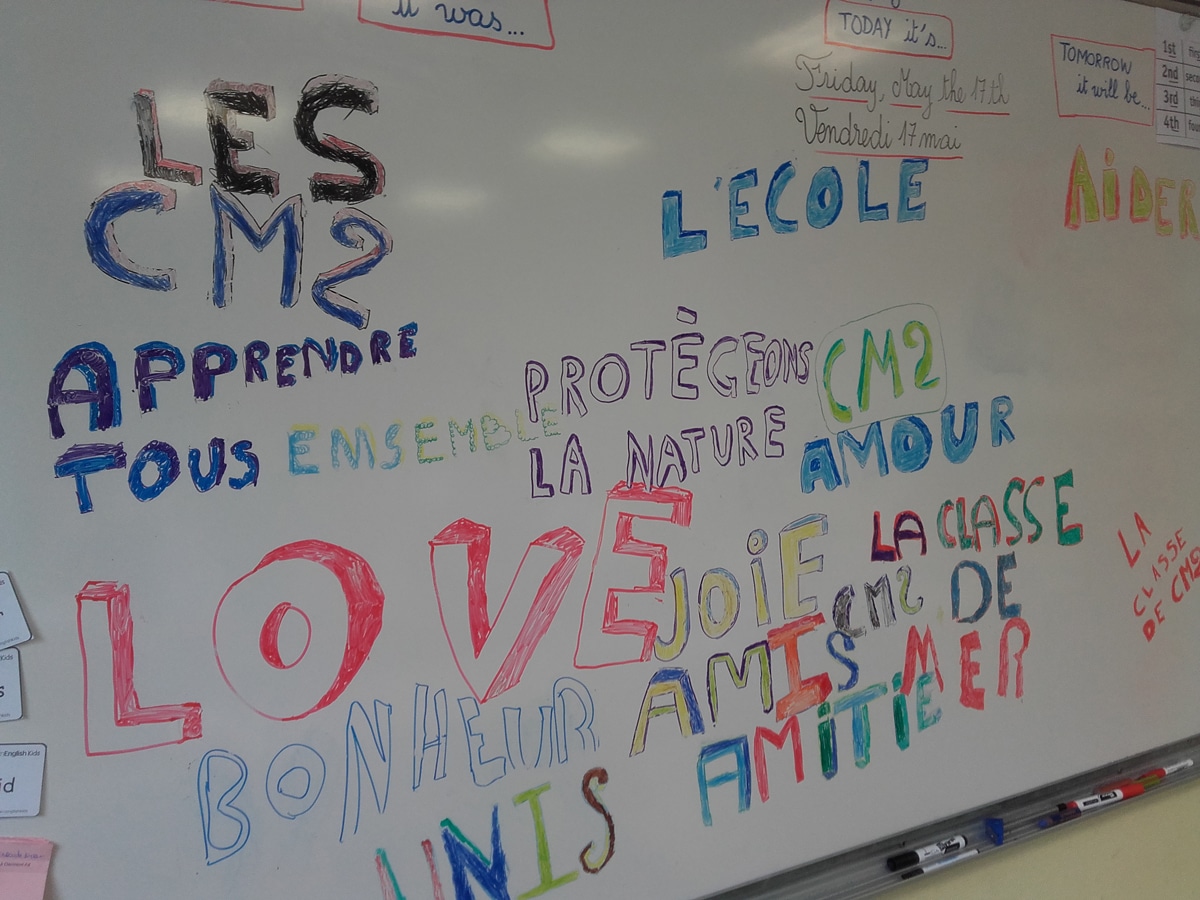 it was...
TODAY it's...
Friday, May the 17th
Vendredi 17 mai
TOMORROW
it will be...
1st
2nd
3rd
4th
LES
CM2
L'ECOLE
AiDER
APPRENDRE
TOUS ENSEMBLE
PROTÈGEONS
LA NATURE
CM2
AMOUR
LOVE
JOiE
LA CLASSE
CM2 DE
MER
LA
CLASSE
DE CM2
AMIS
BONHEUR
AMiTiE
UNIS
English Kids
id